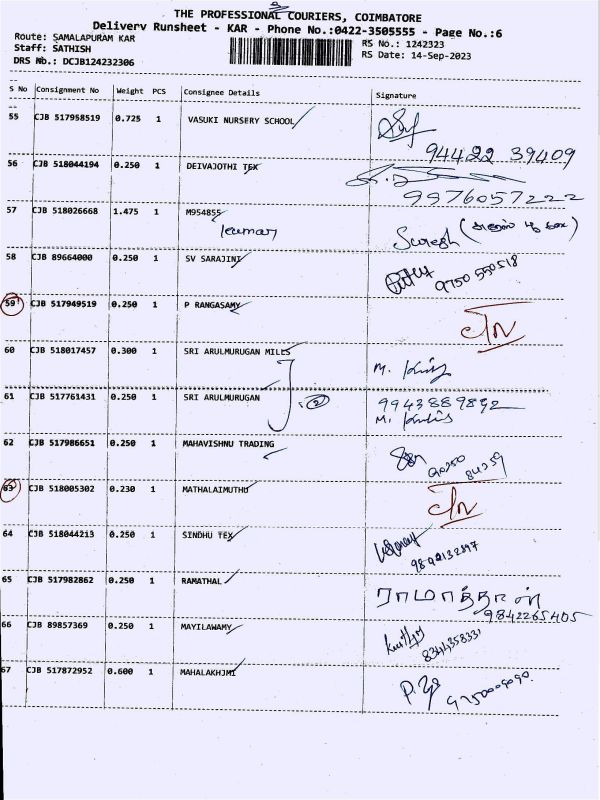 THE PROFESSIONAL COURIERS, COIMBATORE
Delivery Runsheet - KAR - Phone No.:0422-3505555 - Page No.:6
Route: SAMALAPURAM KAR
RS No.: 1242323
Staff: SATHISH
RS Date: 14-Sep-2023
DRS No.: DCJB124232306
S No Consignment No Weight PCS Consignee Details Signature
55 CJB 517958519 0.725 1 VASUKI NURSERY SCHOOL
94422 39409
56 CJB 518044194 0.250 1 DEIVAJOTHI TEX
9976057222
57 CJB 518026668 1.475 1 M954855
kumar Suresh
58 CJB 89664000 0.250 1 SV SARAJINI
9750 550518
59 CJB 517949519 0.250 1 P RANGASAMY
60 CJB 518017457 0.300 1 SRI ARULMURUGAN MILLS
M.
61 CJB 517761431 0.250 1 SRI ARULMURUGAN
2 9943889892
M.
62 CJB 517986651 0.250 1 MAHAVISHNU TRADING
90250
84259
63 CJB 518005302 0.230 1 MATHALAIMUTHU
64 CJB 518044213 0.250 1 SINDHU TEX
65 CJB 517982862 0.250 1 RAMATHAL
ராமாத்தாள்
9842265405
66 CJB 89857369 0.250 1 MAYILAWAMY
67 CJB 517872952 0.600 1 MAHALAKHJMI